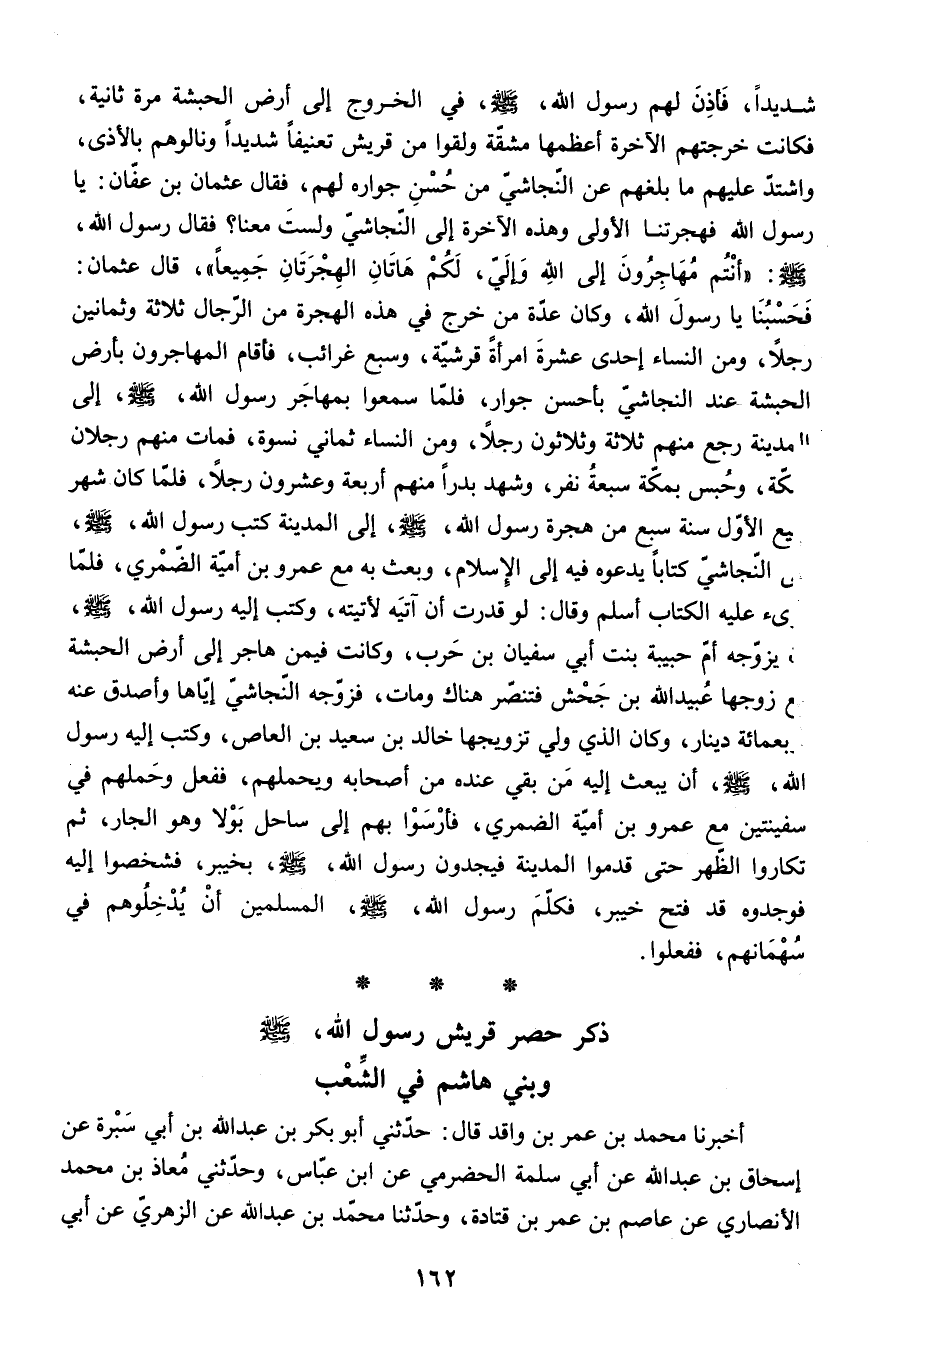 شـديداً، فَأذِنَ لهم رسول الله، ﷺ، في الخـروج إلى أرض الحبشة مرة ثانية،
فكانت خرجتهم الآخرة أعظمها مشقّة ولقوا من قريش تعنيفاً شديداً ونالوهم بالأذى،
واشتدّ عليهم ما بلغهم عن النّجاشيّ من حُسْنِ جواره لهم، فقال عثمان بن عفّان: يا
رسول الله فهجرتنـا الأولى وهذه الآخرة إلى النّجاشيّ ولستَ معنا؟ فقال رسول الله،
ﷺ: «أنْتُم مُهَاجِرُونَ إلى اللهِ وَإليّ، لَكُمْ هَاتَانِ الهِجْرَتَانِ جَمِيعاً»، قال عثمان:
فَحَسْبُنَا يا رسولَ الله، وكان عدّة من خرج في هذه الهجرة من الرّجال ثلاثة وثمانين
رجلًا، ومن النساء إحدى عشرةَ امرأةً قرشيّة، وسبع غرائب، فأقام المهاجرون بأرض
الحبشة عند النجاشيّ بأحسن جوار، فلمّا سمعوا بمهاجَر رسول الله، ﷺ، إلى
المدينة رجع منهم ثلاثة وثلاثون رجلًا، ومن النساء ثماني نسوة، فمات منهم رجلان
كّة، وحُبس بمكّة سبعةُ نفر، وشهد بدراً منهم أربعة وعشرون رجلًا، فلمّا كان شهر
يع الأوّل سنة سبع من هجرة رسول الله، ﷺ، إلى المدينة كتب رسول الله، ﷺ،
ى النّجاشيّ كتاباً يدعوه فيه إلى الإسلام، وبعث به مع عمرو بن أميّة الضّمْري، فلمّا
رىء عليه الكتاب أسلم وقال: لو قدرت أن آتيَه لأتيته، وكتب إليه رسول الله، ﷺ،
يزوّجه أمّ حبيبة بنت أبي سفيان بن حَرب، وكانت فيمن هاجر إلى أرض الحبشة
ع زوجها عُبيدالله بن جَحْش فتنصّر هناك ومات، فزوّجه النّجاشيّ إيّاها وأصدق عنه
بعمائة دينار، وكان الذي ولي تزويجها خالد بن سعيد بن العاص، وكتب إليه رسول
الله، ﷺ، أن يبعث إليه مَن بقي عنده من أصحابه ويحملهم، ففعل وحَملهم في
سفينتين مع عمرو بن أميّة الضمري، فأرْسَوْا بهم إلى ساحل بَوْلا وهو الجار، ثم
تكاروا الظّهر حتى قدموا المدينة فيجدون رسول الله، ﷺ، بخيبر، فشخصوا إليه
فوجدوه قد فتح خيبر، فكلّمَ رسول الله، ﷺ، المسلمين أنْ يُدْخِلُوهم في
سُهْمَانهم، ففعلوا.
* * *
ذكر حصر قريش رسول الله، ﷺ
وبني هاشم في الشِّعْب
أخبرنا محمد بن عمر بن واقد قال: حدّثني أبو بكر بن عبدالله بن أبي سَبْرة عن
إسحاق بن عبدالله عن أبي سلمة الحضرمي عن ابن عبّاس، وحدّثني مُعاذ بن محمد
الأنصاري عن عاصم بن عمر بن قتادة، وحدّثنا محمّد بن عبدالله عن الزهريّ عن أبي
١٦٢